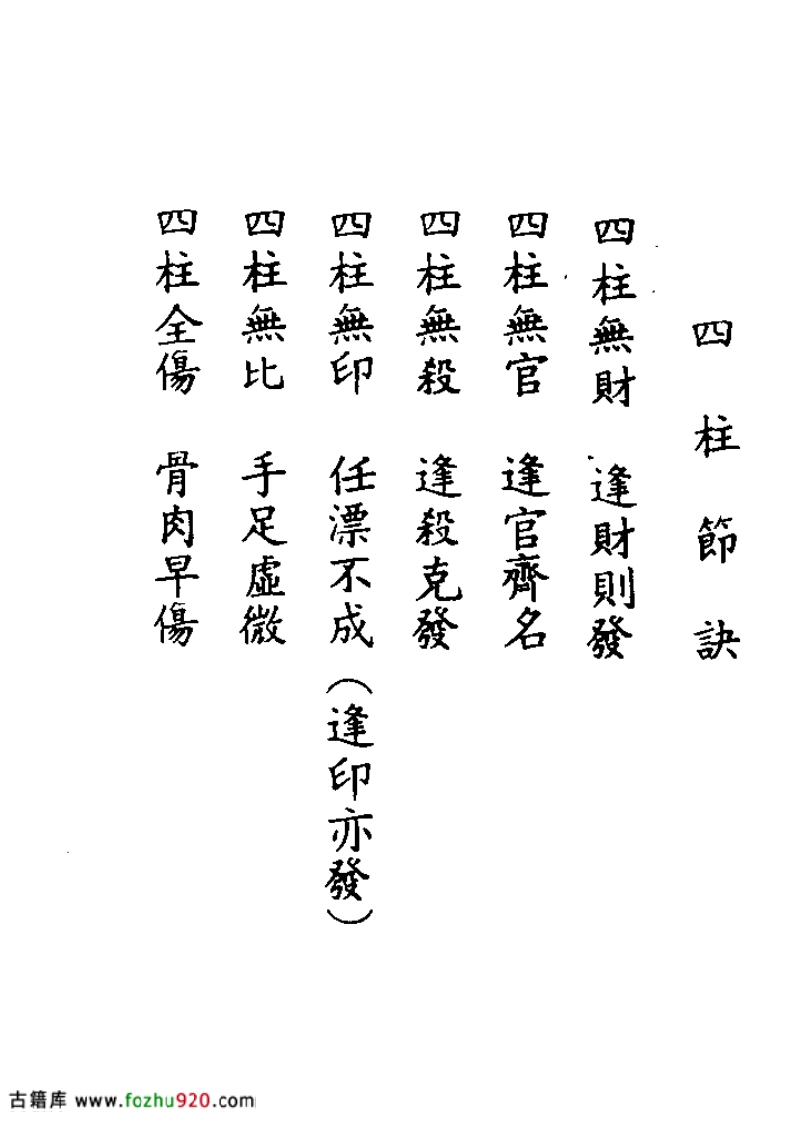 四柱節訣
四柱無財 逢財則發
四柱無官 逢官齊名
四柱無殺 逢殺克發
四柱無印 任漂不成(逢印亦發)
四柱無比 手足虛微
四柱全傷 骨肉早傷
古籍库 www.fozhu920.com